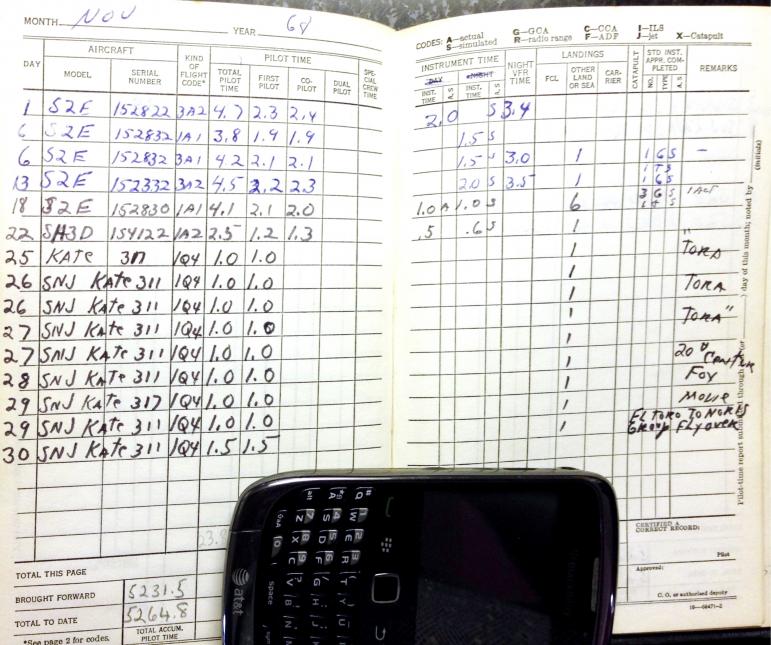 MONTH NOV YEAR 68
DAY AIRCRAFT KIND OF FLIGHT CODE* PILOT TIME SPE- CIAL CREW TIME
MODEL SERIAL NUMBER TOTAL PILOT FIRST PILOT CO- PILOT DUAL PILOT
1 S2E 152822 3A2 4.7 2.3 2.4
6 S2E 152832 1A1 3.8 1.9 1.9
6 S2E 152832 3A1 4.2 2.1 2.1
13 S2E 152332 3A2 4.5 2.2 2.3
18 S2E 152830 1A1 4.1 2.1 2.0
22 SH3D 154122 1A2 2.5 1.2 1.3
25 KATE 311 1Q4 1.0 1.0
26 SNJ KATE 311 1Q4 1.0 1.0
26 SNJ KATE 311 1Q4 1.0 1.0
27 SNJ KATE 311 1Q4 1.0 1.0
27 SNJ KATE 311 1Q4 1.0 1.0
28 SNJ KATE 311 1Q4 1.0 1.0
29 SNJ KATE 317 1Q4 1.0 1.0
29 SNJ KATE 311 1Q4 1.0 1.0
30 SNJ KATE 311 1Q4 1.5 1.5
TOTAL THIS PAGE
BROUGHT FORWARD 5231.5
TOTAL TO DATE 5264.8
*See page 2 for codes. TOTAL ACCUM. PILOT TIME
CODES: A—actual G—GCA C—CCA I—ILS
S—simulated R—radio range F—ADF J—jet X—Catapult
INSTRUMENT TIME NIGHT VFR TIME LANDINGS CATAPULT STD INST. APPR. COM- PLETED REMARKS
DAY NIGHT FCL OTHER LAND OR SEA CAR- RIER NO. TYPE A, S
INST. TIME A, S INST. TIME A, S
2.0 S 3.4
1.5 S
1.5 S 3.0 1 1 G S –
2.0 S 3.5 1 1 G S
1.0 A 1.0 S 6 3 G S 1 ACT
.5 .6 S 1
1 " TORA
1 TORA
1 TORA "
1
1 20th Century
1 FOX
1 MOVIE
1 EL TORO TO NORIS
1 GROUP FLYOVER
CERTIFIED A CORRECT RECORD:
Pilot
Approved:
C. O. or authorized deputy
16—68471-2
day of this month; noted by (Initials)
Pilot-time report submitted through (or
at&t
Q W E R T Y U
A S D F G H J
alt Z X C V B N M
space sym